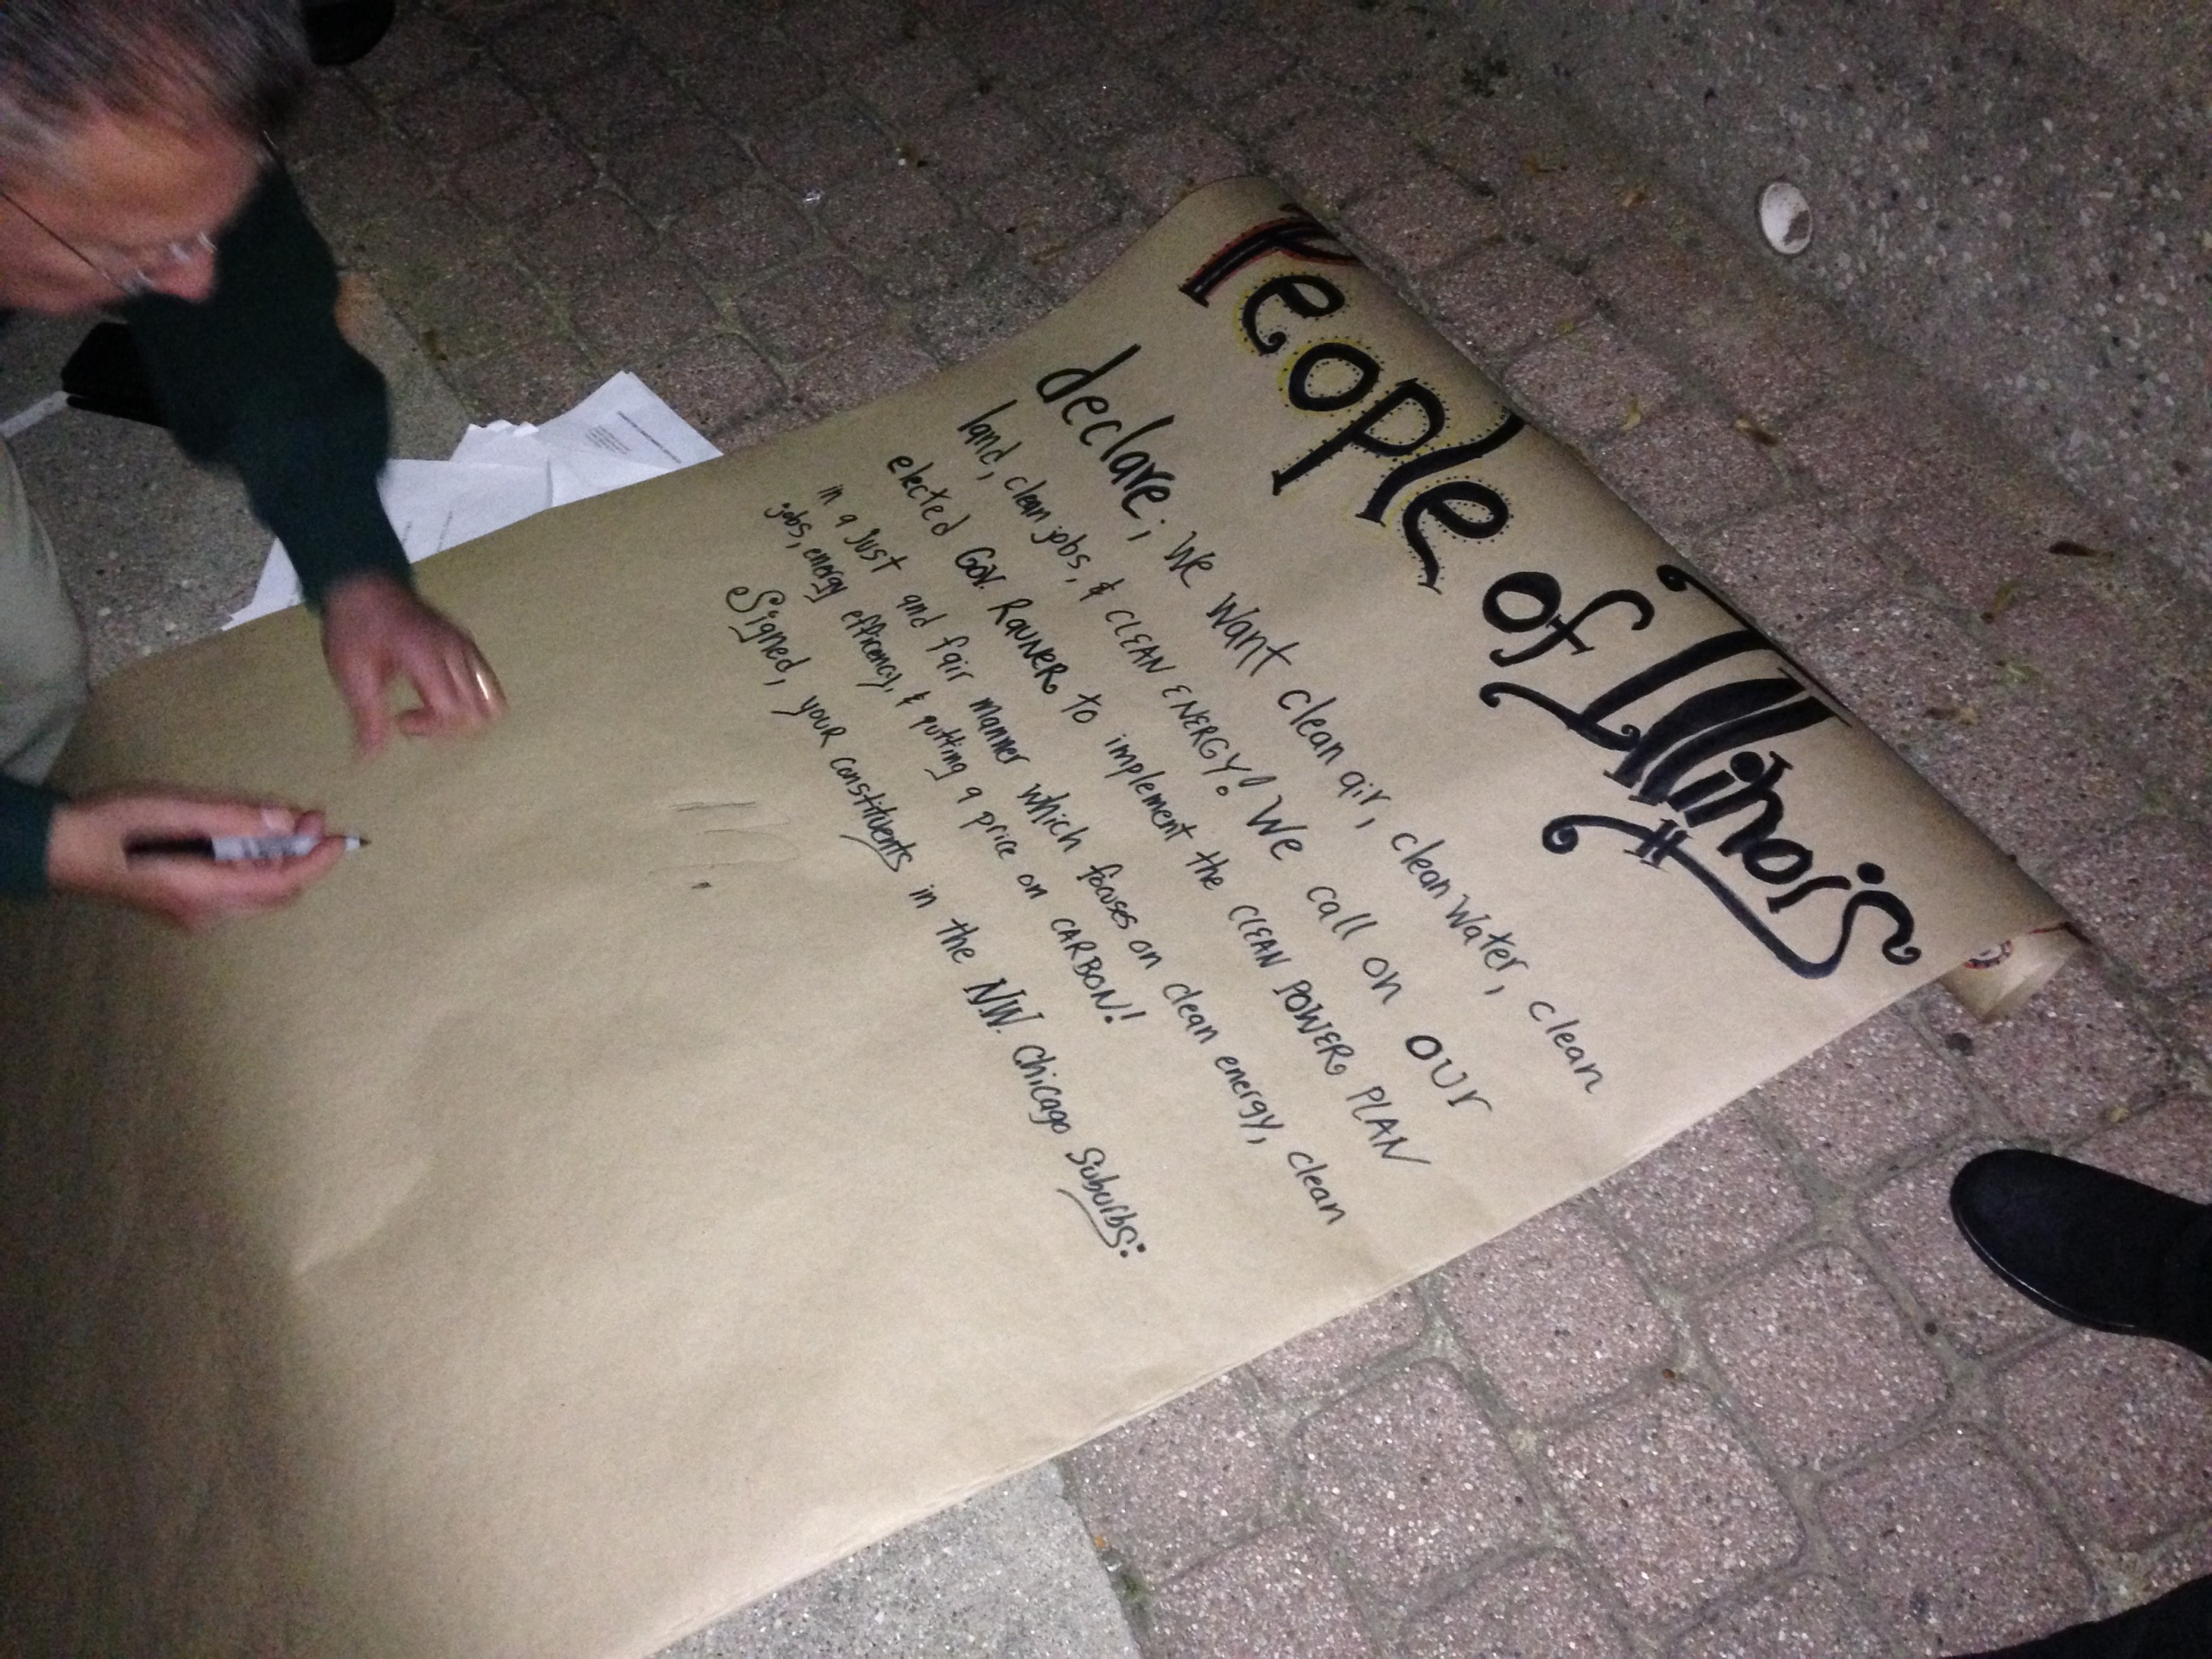 People of Illinois
declare; We want clean air, clean water, clean
land, clean jobs, & CLEAN ENERGY! We call on our
elected Gov. RAUNER to implement the CLEAN POWER PLAN
in a just and fair manner which focuses on clean energy, clean
jobs, energy efficiency, & putting a price on CARBON!
Signed, your constituents in the N.W. Chicago Suburbs: